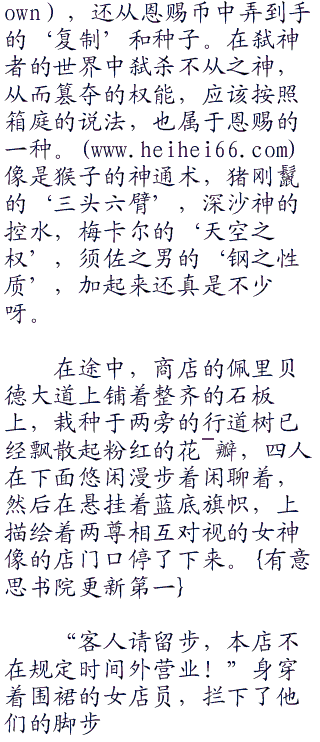 own），还从恩赐币中弄到手
的‘复制’和种子。在弑神
者的世界中弑杀不从之神，
从而篡夺的权能，应该按照
箱庭的说法，也属于恩赐的
一种。(www.heihei66.com)
像是猴子的神通术，猪刚鬣
的‘三头六臂’，深沙神的
控水，梅卡尔的‘天空之
权’，须佐之男的‘钢之性
质’，加起来还真是不少
呀。
在途中，商店的佩里贝
德大道上铺着整齐的石板
上，栽种于两旁的行道树已
经飘散起粉红的花¯瓣，四人
在下面悠闲漫步着闲聊着，
然后在悬挂着蓝底旗帜，上
描绘着两尊相互对视的女神
像的店门口停了下来。{有意
思书院更新第一}
“客人请留步，本店不
在规定时间外营业！”身穿
着围裙的女店员，拦下了他
们的脚步